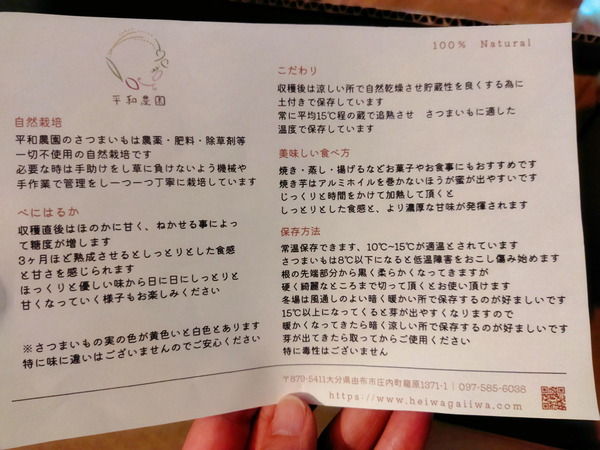 平和農園
自然栽培
平和農園のさつまいもは農薬・肥料・除草剤等
一切不使用の自然栽培です
必要な時は手助けをし草に負けないよう機械や
手作業で管理をし一つ一つ丁寧に栽培しています
べにはるか
収穫直後はほのかに甘く、ねかせる事によっ
て糖度が増します
3ヶ月ほど熟成させるとしっとりとした食感
と甘さを感じられます
ほっくりと優しい味から日に日にしっとりと
甘くなっていく様子もお楽しみください
※さつまいもの実の色が黄色いと白色とあります
特に味に違いはございませんのでご安心ください
100% Natural
こだわり
収穫後は涼しい所で自然乾燥させ貯蔵性を良くする為に
土付きで保存しています
常に平均15℃程の蔵で追熟させ さつまいもに適した
温度で保存しています
美味しい食べ方
焼き・蒸し・揚げるなどお菓子やお食事にもおすすめです
焼き芋はアルミホイルを巻かないほうが蜜が出やすいです
じっくりと時間をかけて加熱して頂くと
しっとりとした食感と、より濃厚な甘味が発揮されます
保存方法
常温保存できます、10℃~15℃が適温とされています
さつまいもは8℃以下になると低温障害をおこし傷み始めます
根の先端部分から黒く柔らかくなってきますが
硬く綺麗なところまで切って頂くとお使い頂けます
冬場は風通しのよい暗く暖かい所で保存するのが好ましいです
15℃以上になってくると芽が出やすくなりますので
暖かくなってきたら暗く涼しい所で保存するのが好ましいです
芽が出てきたら取ってからご使用ください
特に毒性はございません
〒879-5411大分県由布市庄内町龍原1371-1 | 097-585-6038
https://www.heiwagaiiwa.com